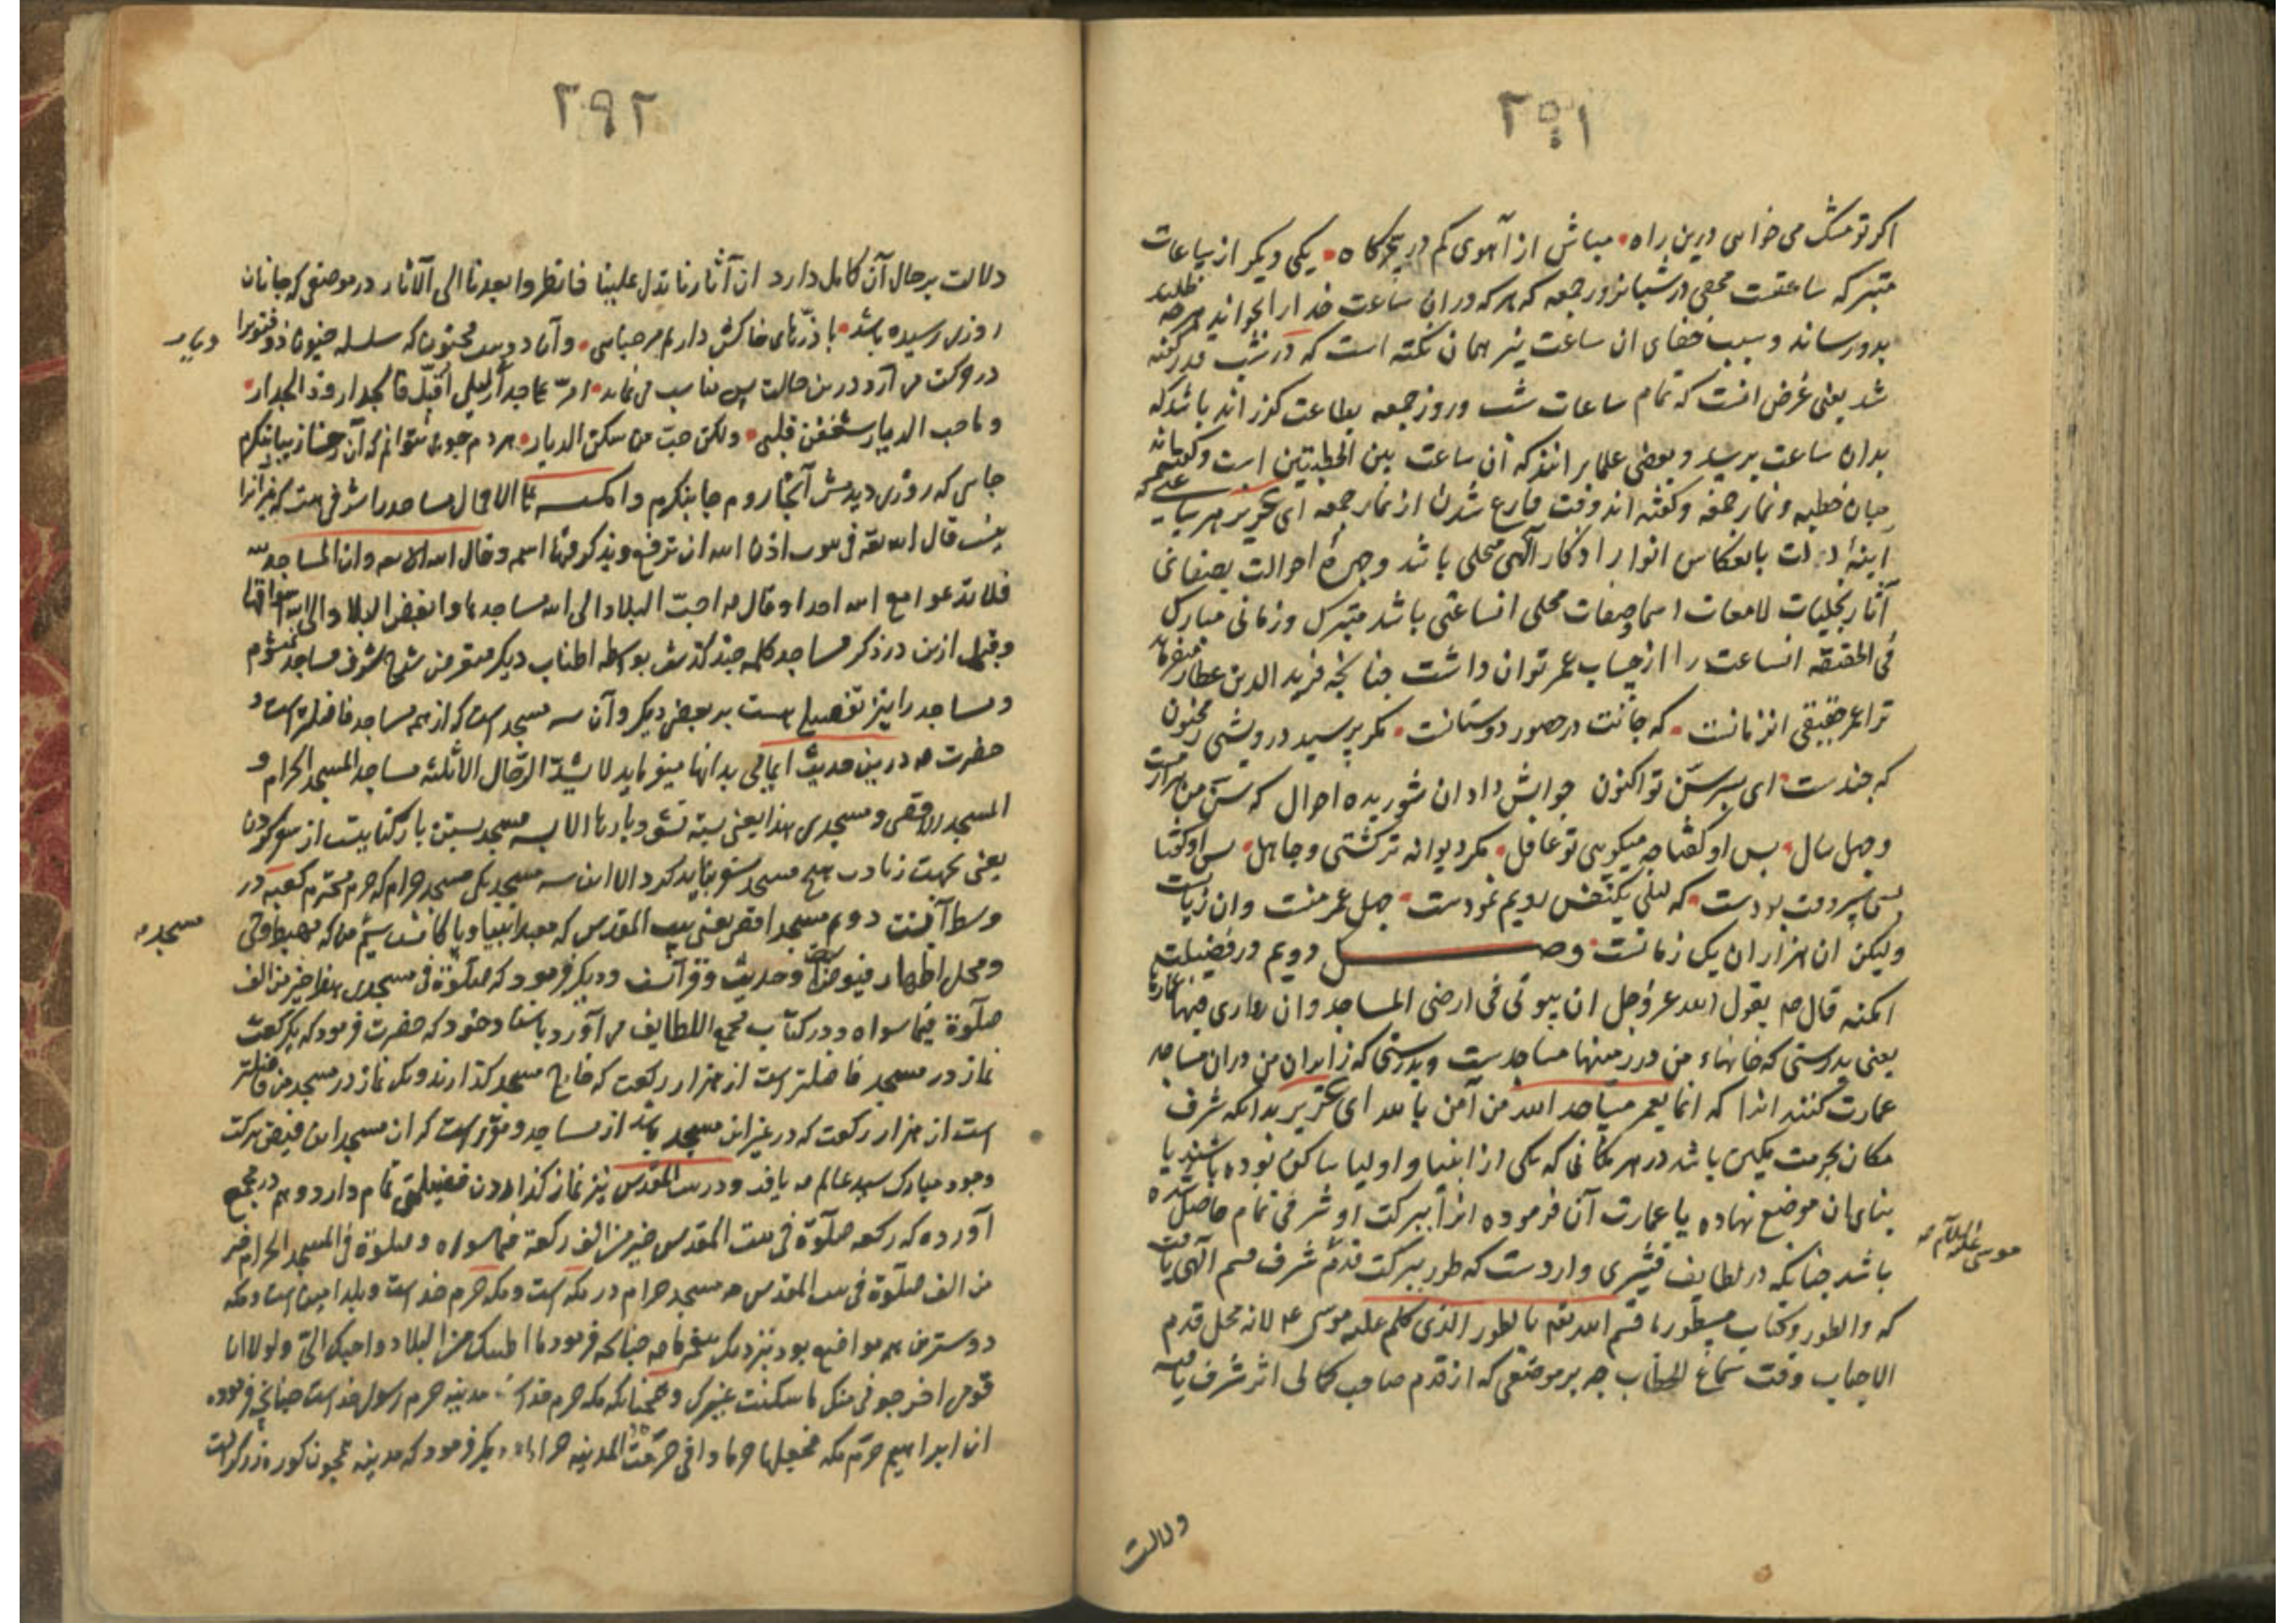 ۲۹۱
اکر تو مشک می خواهی درین راه • مباش از آهوی کم در چراکاه • یکی دیکر از ساعات
متبرکه ساعتست مخفی در شبانروز جمعه که هرکه دران ساعت خدا را بخواند بهرچه طلبد
بدو رساند و سبب خفای ان ساعت نیز همان نکته است که در شب قدر کفته
شد یعنی غرض انست که تمام ساعات شب و روز جمعه بطاعت کزرانده باشد که
بدان ساعت برسد و بعضی علما برانند که آن ساعت بین الخطبتین است و کفته اند
میان خطبه و نماز جمعه و کفته اند وقت فارغ شدن از نماز جمعه ای عزیز هر ساعتی که
آینهٔ دلت بانعکاس انوار اذکار آلهی متجلی باشد و چهرهٔ احوالت بصفای
آثار تجلیات لامعات اسما و صفات محلی انساعتی باشد متبرک و زمانی مبارک
فی الحقیقه انساعت را از حساب عمر توان داشت چنانچه فرید الدین عطار میفرماید
ترا عمر حقیقی انزمانست • که جانت در حضور دوستانست • مکر پرسید درویشی ز مجنون
که چندست ای پسر سن تو اکنون جوابش داد ان شوریده احوال که سن من هزارست
و چهل سال • پس او کفتا چه میکویی تو غافل • مکر دیوانه تر کشتی و جاهل • پس او کفتا
که لیلی یکنفس رویم نمودست • چهل عمر منست وان زیانست
ولیکن ان هزار ان یک زمانست • وصل دویم در فضیلت
امکنه قال صم یقول الله عز و جل ان بیوتی فی ارضی المساجد وان زواری فیها عمارها
یعنی بدرستی که خانهاء من در زمینها مساجدست و بدرستی که زایران من دران مساجد
عمارت کنند انرا که انما یعمر مساجد الله من آمن بالله ای عزیز بدانکه شرف
مکان بحرمت مکین باشد در هر مکانی که یکی از انبیا و اولیا ساکن بوده باشند یا
بنای ان موضع نهاده یا عمارت آن فرموده انرا ببرکت او شرفی تمام حاصل شده
باشد چنانکه در لطایف قشیری واردست که طور ببرکت قدم شرف قسم آلهی یافت
موسی علیه السلام صح
که والطور و کتاب مسطور ما قسم الله تعم بالطور الذی کلم علیه موسی ع لانه محل قدم
الاحباب وقت سماع الخطاب چه هر موضعی که از قدم صاحب کمالی اثر شرف یافته
دلالت
۲۹۲
دلالت بر حال آن کامل دارد ان آثارنا تدل علینا فانظروا بعدنا الی الآثار در موضعی که جانان
روزی رسیده باشد • با ذرّهای خاکش داریم مرحبایی • وآن دوست مجنون که سلسله جنون ذوفنونرا
در حرکت می آرد درین حالت بس مناسب می نماید • امرّ علی جدار لیلی اقبّل ذا الجدار و ذا الجدار •
دیار صح
و ما حب الدیار شغفن قلبی • ولکن حبّ من سکن الدیار • هردم چون نتوانم که آن رخسار زیبا بنکرم
جایی که روزی دیدمش آنجا روم جا بنکرم و امکنه مساجد را شرفی هست که غیر انرا
نیست قال الله تعه فی بیوت اذن الله ان ترفع ویذکر فیها اسمه وقال الله وان المساجد لله
فلا تدعوا مع الله احدا وقال صه احبّ البلاد الی الله مساجدها وابغض البلاد الی الله اسواقها
و قبل ازین در ذکر مساجد کلمه چند کذشت بواسطه اطناب دیکر متعرض شرح شرف مساجد نمیشوم
و مساجد را نیز تفضیل هست بر بعض دیکر وآن سه مسجد است که از همه مساجد فاضلترست و
حضرت صه درین حدیث ایمائی بدانها میفرماید لا یشدّ الرّحال الا ثلثه مساجد المسجد الحرام و
المسجد الاقصی و مسجدی هذا یعنی بسته نشود بارها الا بسه مسجد بستن بار کنایتست از سفر کردن
یعنی بجهت زیارت هیچ مسجد سفر نباید کرد الا این سه مسجد یکی مسجد حرام که حرم محترم کعبه در
وسط آنست دوم مسجد اقصی یعنی بیت المقدس که معبد انبیا و پاکانست سیم من که مهبط وحی
مسجد صح
و محل اظهار فیوضات و حدیث و قرآنست و دیکر فرمود که صلوة فی مسجدی هذا خیر من الف
صلوة فیما سواه و در کتاب مجمع اللطایف می آورد باسناد خود که حضرت فرمود که یکرکعت
نماز در مسجد فاضلترست از هزار رکعت که خارج مسجد کذارند و یک نماز در مسجد من فاضلتر
است از هزار رکعت که در غیر این مسجد باشد از مساجد و مقرّر است که ان مسجد این فیض ببرکت
وجود مبارک سید عالم صه یافته و در بیت المقدس نیز نماز کذاردن فضیلتی تمام دارد و هم در مجمع
آورده که رکعه صلوة فی بیت المقدس خیر من الف رکعة فیما سواه و صلوة فی المسجد الحرام خیر
من الف صلوة فی بیت المقدس صه مسجد حرام در مکه است و مکه حرم خداست و بلد امین است و مکه
دوسترین همه مواضع بود نزدیک پیغمبر ما صه چنانچه فرمود ما اطیبک من البلاد و احبک الیّ ولولا ان
قومی اخرجونی منک ما سکنت غیرک و همچنانکه مکه حرم خداست مدینه حرم رسول خداست چنانچه فرموده
ان ابراهیم حرّم مکه فجعلها حرما و انی حرّمت المدینه حراما و دیکر فرمود که مدینه همچون کوره زرکرست